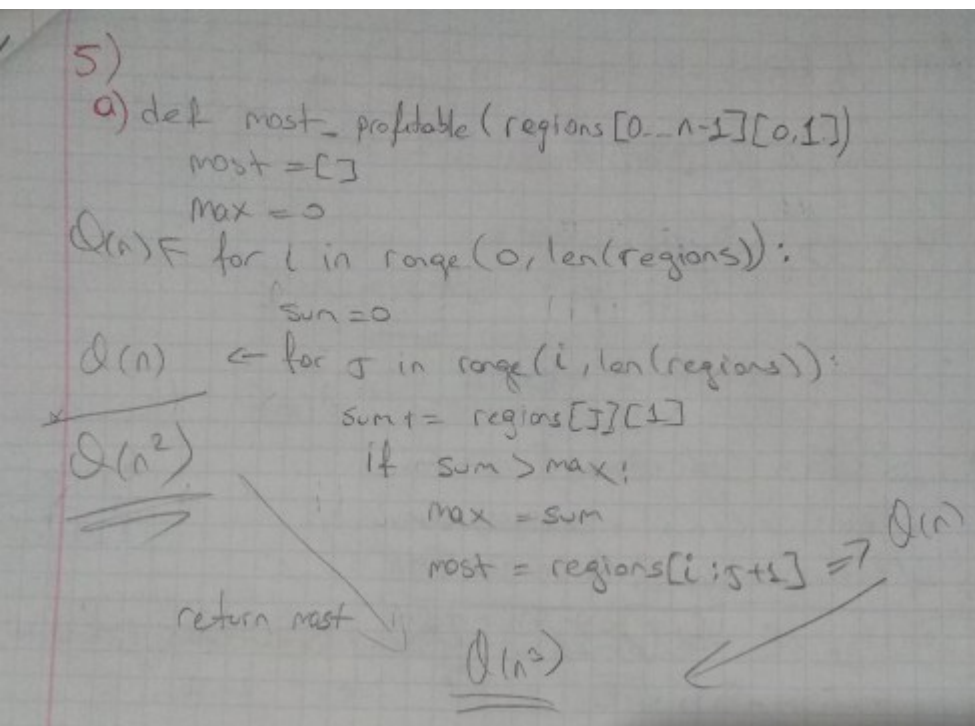 5)
a) def most_profitable(regions[0...n-1][0,1])
most = []
max = 0
θ(n) ← for i in range(0, len(regions)):
sum = 0
θ(n) ← for j in range(i, len(regions)):
sum += regions[j][1]
θ(n²)
if sum > max:
max = sum
most = regions[i:j+1] => θ(n)
return most
θ(n³)